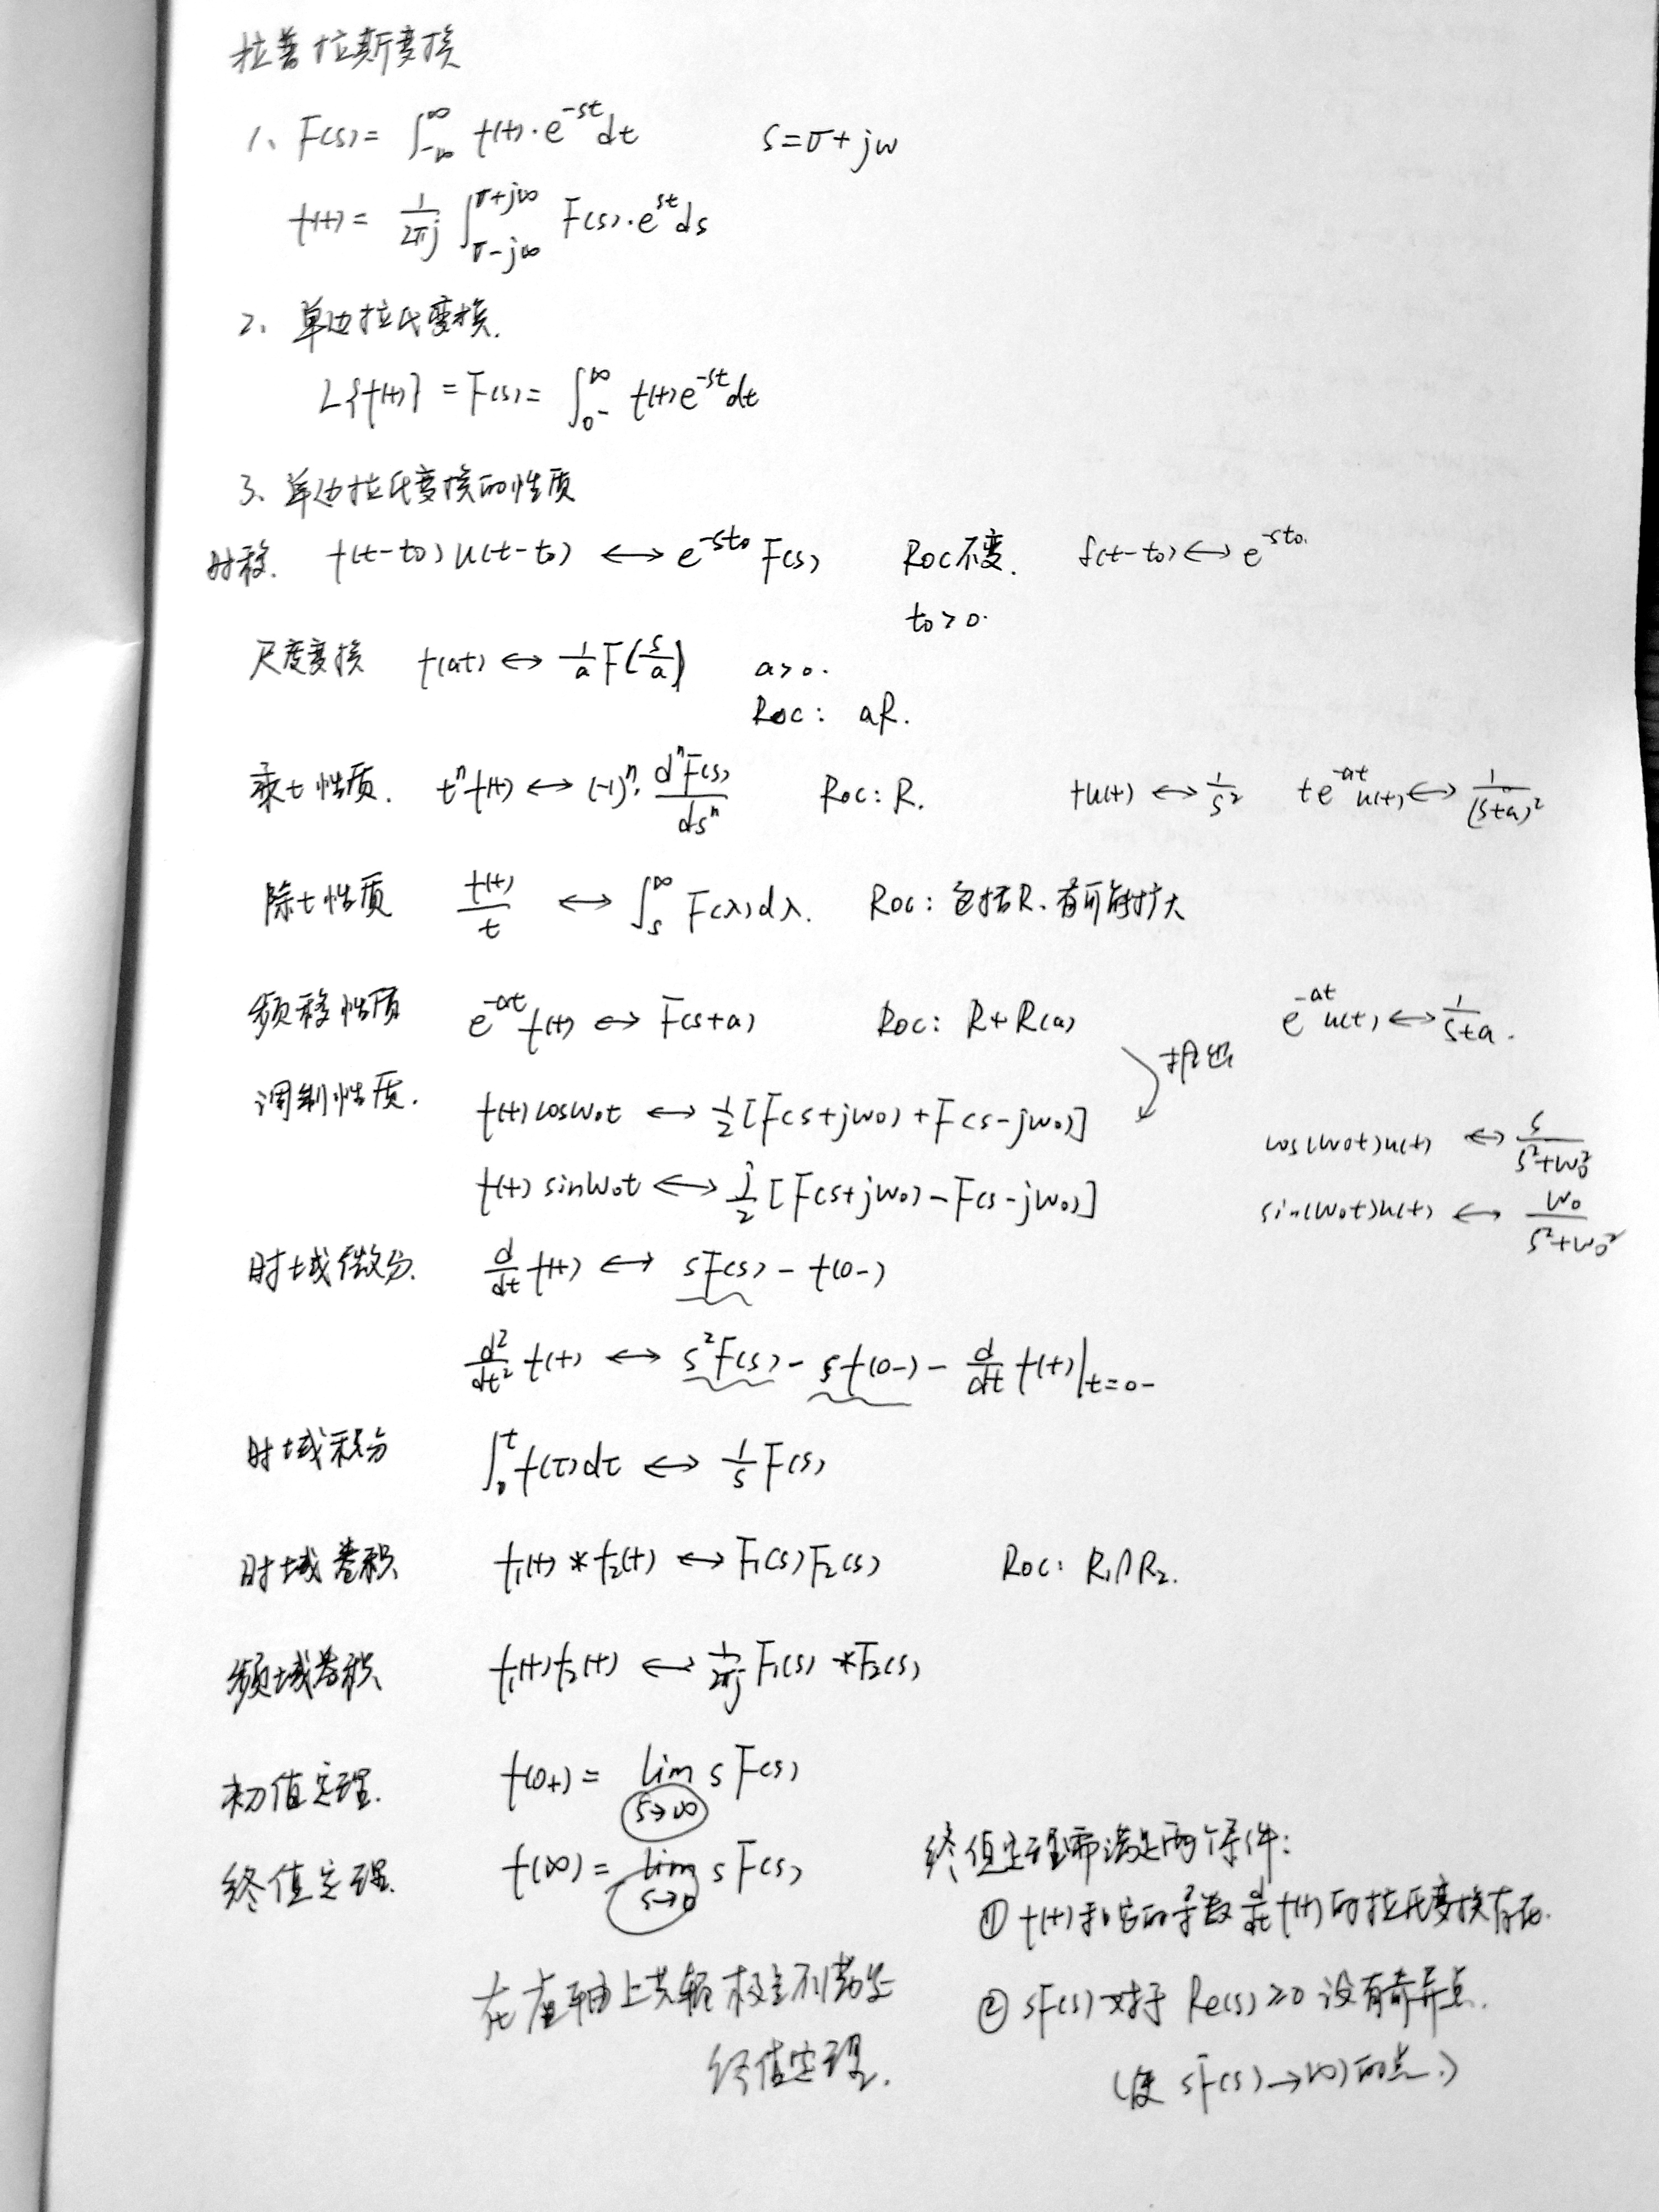 拉普拉斯变换
1、F(s) = ∫_{-∞}^{∞} f(t)·e^{-st}dt    s=σ+jω
f(t) = \frac{1}{2πj} ∫_{σ-j∞}^{σ+j∞} F(s)·e^{st}ds
2、单边拉氏变换.
L{f(t)} = F(s) = ∫_{0^-}^{∞} f(t)e^{-st}dt
3、单边拉氏变换的性质
时移. f(t-t₀)u(t-t₀) ↔ e^{-st₀}F(s)    Roc不变.    δ(t-t₀) ↔ e^{-st₀}.
t₀>0.
尺度变换 f(at) ↔ \frac{1}{a}F(\frac{s}{a})    a>0.
Roc: aR.
乘t性质. t^n f(t) ↔ (-1)^n·\frac{d^nF(s)}{ds^n}    Roc: R.    tu(t) ↔ \frac{1}{s^2}    te^{-at}u(t) ↔ \frac{1}{(s+a)^2}
除t性质 \frac{f(t)}{t} ↔ ∫_s^∞ F(λ)dλ.    Roc: 包括R、有可能扩大
频移性质 e^{-at}f(t) ↔ F(s+a)    Roc: R+R(a)    e^{-at}u(t) ↔ \frac{1}{s+a}.
推出
调制性质. f(t)cosω₀t ↔ \frac{1}{2}[F(s+jω₀)+F(s-jω₀)]    cos(ω₀t)u(t) ↔ \frac{s}{s^2+ω₀^2}
f(t)sinω₀t ↔ \frac{j}{2}[F(s+jω₀)-F(s-jω₀)]    sin(ω₀t)u(t) ↔ \frac{ω₀}{s^2+ω₀^2}
时域微分. \frac{d}{dt}f(t) ↔ sF(s)-f(0-)
\frac{d^2}{dt^2}f(t) ↔ s^2F(s)-sf(0-)-\frac{d}{dt}f(t)|_{t=0-}
时域积分 ∫_0^t f(τ)dτ ↔ \frac{1}{s}F(s)
时域卷积 f₁(t)*f₂(t) ↔ F₁(s)F₂(s)    Roc: R₁∩R₂.
频域卷积 f₁(t)f₂(t) ↔ \frac{1}{2πj}F₁(s)*F₂(s)
初值定理. f(0+) = lim_{s→∞} sF(s)
终值定理. f(∞) = lim_{s→0} sF(s)
在虚轴上共轭极点不满足
终值定理.
终值定理需满足两个条件:
① f(t)和它的导数\frac{d}{dt}f(t)的拉氏变换存在.
② sF(s)对于Re(s)≥0没有奇异点.
(使 sF(s)→∞)的点.)